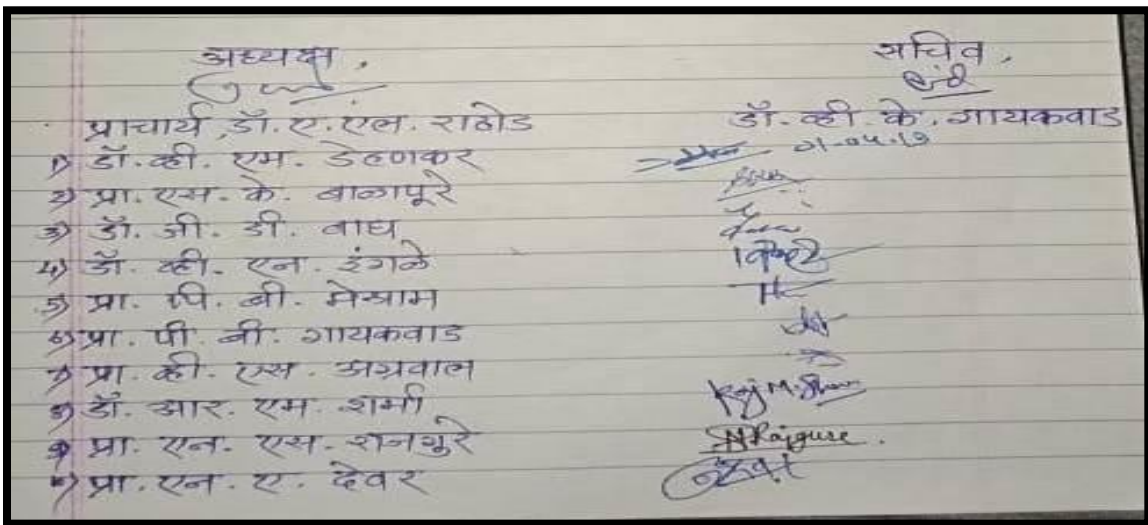 अध्यक्ष, सचिव,
प्राचार्य, डॉ. ए. एल. राठोड डॉ. व्ही के. गायकवाड
1) डॉ. व्ही. एम. डेहणकर 01-04-19
2) प्रा. एस. के. बाळापूरे
3) डॉ. जी. डी. वाघ
4) डॉ. व्ही. एन. इंगळे
5) प्रा. पि. बी. मेश्राम
6) प्रा. पी. बी. गायकवाड
7) प्रा. व्ही. एस. अग्रवाल
8) डॉ. आर. एम. शर्मा
9) प्रा. एन. एस. राजगूरे NRajgure.
10) प्रा. एन. ए. देवर